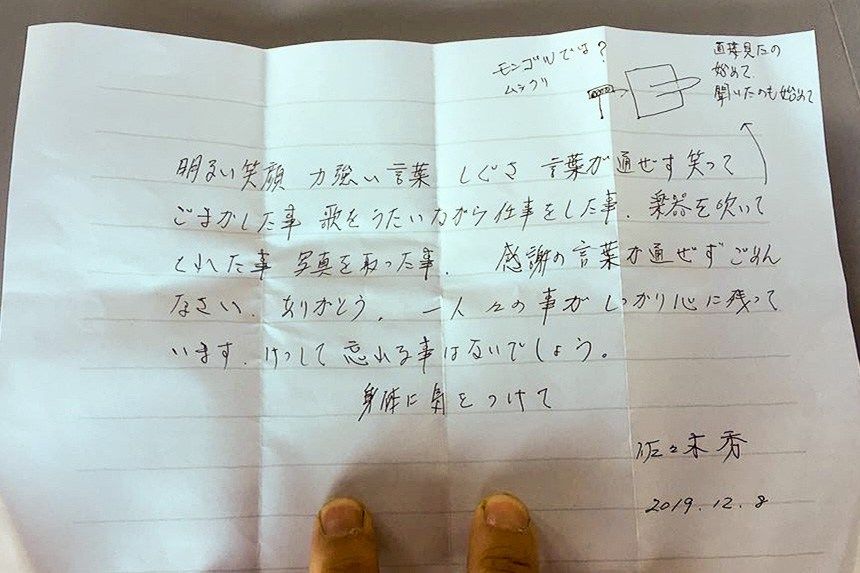 モンゴルでは？
ムシブリ
直接見たの
始めて.
聞いたのも始めて
明るい笑顔 力強い言葉 しぐさ 言葉が通ぜず笑って
ごまかした事 歌をうたいながら仕事をした事. 楽器を吹いて
くれた事 写真を取った事. 感謝の言葉が通ぜずごめん
なさい. ありがとう. 一人々々の事がしっかり心に残って
います. けっして忘れる事はないでしょう。
身体に気をつけて
佐々木秀
2019.12.8